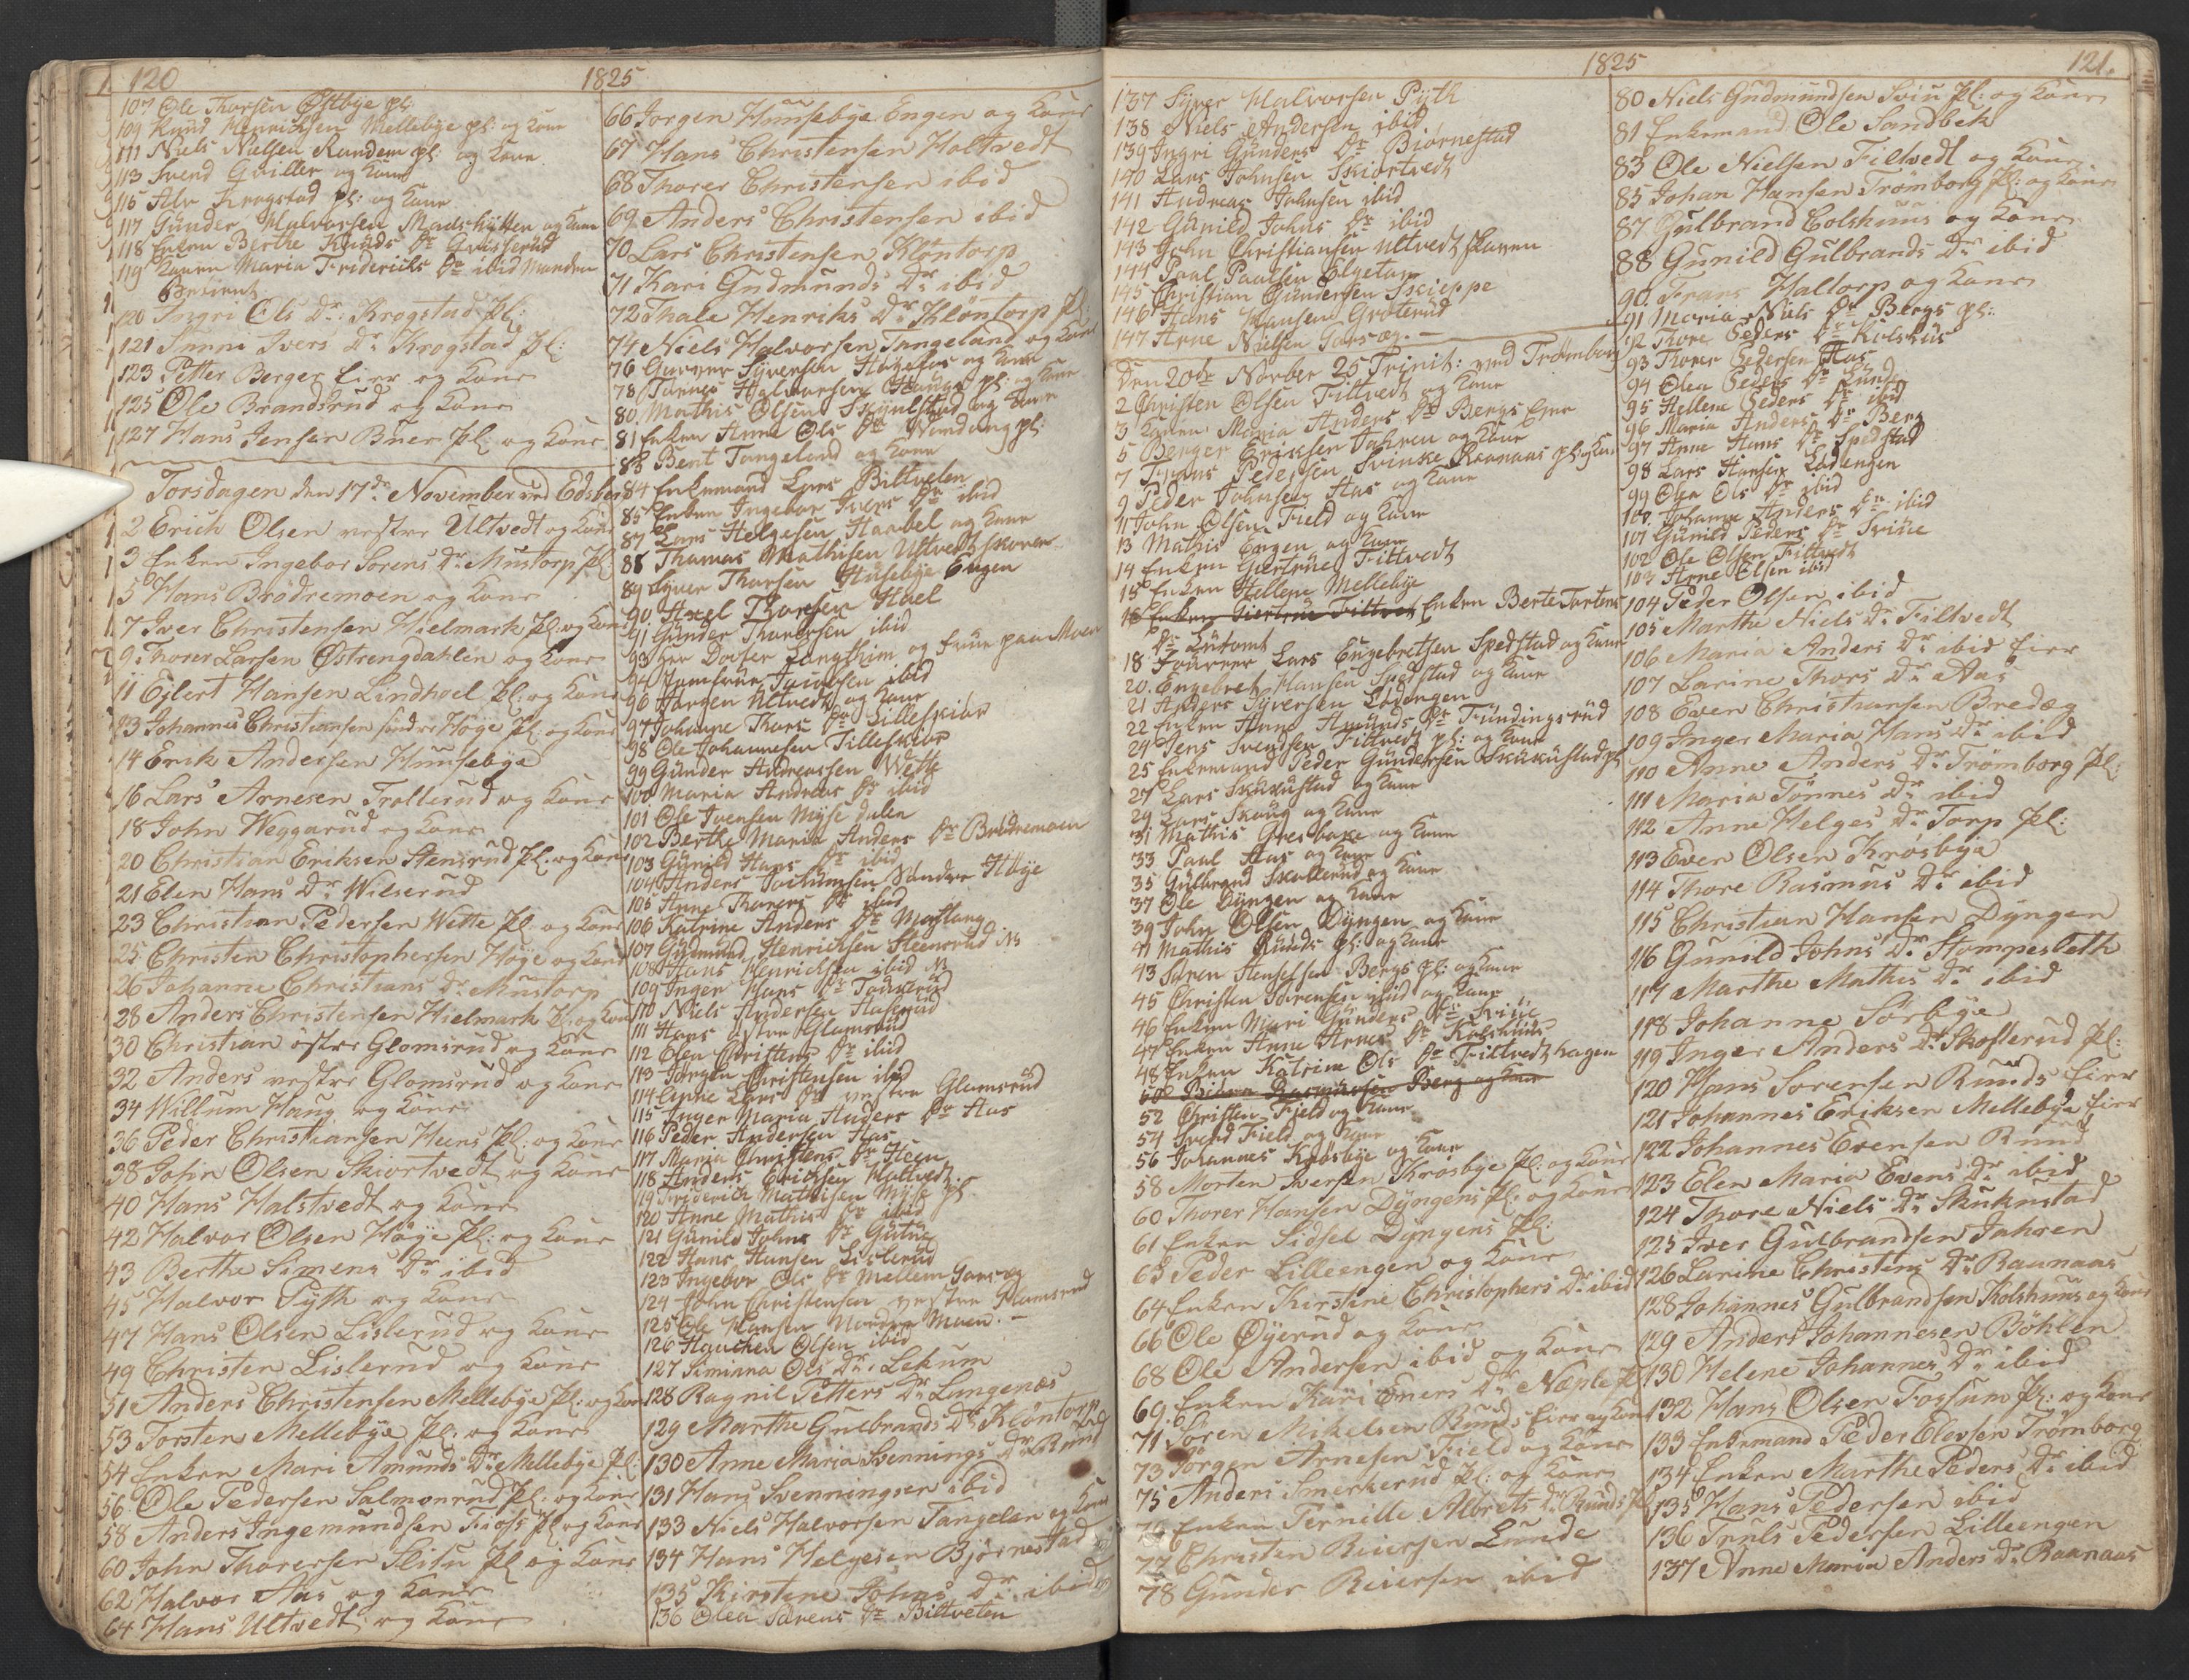 120
1825
107 Ole Thorsen Østbye pl:
109 Knud Henrichsen Mellebye pl: og Kone
111 Niels Nielsen Randem pl: og Kone
113 Svend Gviller og Kone
115 Alv Krogstad pl: og Kone
117 Gunder Halvorsen Madshytten og Kone
118 Enken Berthe Knuds Dr
119 Konen Maria Frideriks Dr ibid Manden
Betient
120 Ingri Ols Dr: Krogstad pl:
121 Anne Ivers Dr Krogstad pl:
123 Petter Berger Eier og Kone
125 Ole Brandsrud og Kone
127 Hans Jensen Buer pl: og Kone
Torsdagen den 17de November ved Edsber
2 Erich Olsen vestre Ultvedt og Kone
3 Enken Ingebor Sørens Dr Mustorp pl:
5 Hans Brødremoen og Kone
7 Iver Christensen Hielmark pl: og Kone
9 Thorer Larsen Østrengdahlen og Kone
11 Eylert Hansen Lindhoel pl: og Kone
13 Johannes Christiansen søndre Høye pl: og Kone
14 Erik Andersen Huusebye
16 Lars Arnesen Trollerud og Kone
18 John Weggarud og Kone
20 Christian Eriksen Stensrud pl: og Kone
21 Elen Hans Dr Wilserud
23 Christian Pedersen Wette pl: og Kone
25 Christen Christophersen Høye og Kone
26 Johanne Christians Dr Mustorp
28 Anders Christensen Hielmark pl: og Kone
30 Christian østre Glomsrud og Kone
32 Anders vestre Glomsrud og Kone
34 Willum Haug og Kone
36 Peder Christiansen Heens pl: og Kone
38 John Olsen Skiortvedt og Kone
40 Hans Halstvedt og Kone
42 Halvor Olsen Høye pl: og Kone
43 Berthe Simens Dr ibid
45 Halvor Pyth og Kone
47 Hans Olsen Lislerud og Kone
49 Christen Lislerud og Kone
51 Anders Christensen Mellebye pl: og Kone
53 Torsten Mellebye pl: og Kone
54 Enken Mari Amunds Dr Mellebye pl:
56 Ole Pedersen Salmonrud pl: og Kone
58 Anders Ingemundsen Fios pl: og Kone
60 John Thorersen Slitu pl og Kone
62 Halvor Aas og Kone
64 Hans Ultvedt og Kone
66 Jørgen Huusebye Engen og Kone
67 Hans Christensen Holtvedt
68 Thorer Christensen ibid
69 Anders Christensen ibid
70 Lars Christensen Kløntorp
71 Kari Gudmunds Dr ibid
72 Thale Henriks Dr Kløntorp pl:
74 Niels Halvorsen Tangeland og Kone
76 Gunner Syversen og Kone
78 Tønnes Halvorsen Hauge pl: og Kone
80 Mathis Olsen Skyulstad og Kone
81 Enken Anne Ols Dr pl:
83 Bent Tangeland og Kone
84 Enkemand Lars Biltveten
85 Enken Ingebor Ivers Dr ibid
87 Lars Helgesen Haabel og Kone
88 Thomas Mathisen Ultvedt skoven
89 Syver Thorsen Husebye Engen
90 Axel Thorsen Hoel
91 Gunder Thorersen ibid
93 Her Docter Langthim og Frue paa Moen
94 Jomfrue ibid
96 Jørgen Ultvedt og Kone
97 Johanne Thors Dr Lilleskiør
98 Ole Johannesen Lilleskiør
99 Gunder Andreassen Wette
100 Maria Andreas Dr ibid
101 Ole Ivensen Myse dalen
102 Berthe Maria Anders Dr Brødremoen
103 Gunild Hans Dr ibid
104 Anders Jochumsen Søndre Høye
105 Anne Thorers Dr ibid
106 Katrine Anders Dr Mostang
107 Gudmund Henrichsen Steensrud
108 Hans Henrichsen ibid
109 Inger Hans Dr
110 Niels Andersen
111 Hans østre Glomsrud
112 Olea Christens Dr ibid
113 Jørgen Christensen ibid
114 Lars Dr vestre Glomsrud
115 Inger Maria Anders Dr Aas
116 Peder Andersen Aas
117 Maria Christens Dr Heen
118 Anders Erichsen Holtvedt
119 Friderich Mathisen Myse pl
120 Anne Mathis Dr ibid
121 Gunild Johns Dr Gutue
122 Hans Hansen Lislerud
123 Ingebor Ols Dr Mellem
124 John Christensen vestre Glomsrud
125 Ole Hansen Nordre Moen
126 Haachen Olsen ibid
127 Siminna Ols Dr. Lekum
128 Ragnil Petters Dr Langenæs
129 Marthe Gulbrands Dr Kløntorp
130 Anne Maria Svennings Dr Rund
131 Hans Svenningsen ibid
133 Niels Halvorsen Tangelan og Kone
134 Hans Helgesen Bjørnestad
135 Kirstine Johns Dr ibid
136 Olea Sørens Dr Biltveten
1825
121.
137 Syver Halvorsen Pyth
138 Niels Andersen ibid
139 Ingri Gunders Dr Biørnestad
140 Lars Johnsen Skiortvedt
141 Andreas Johnsen ibid
142 Gunild Johns Dr ibid
143 John Christiansen Ultvedt skoven
144 Paal Paalsen Elgetun
145 Christian Gundersen Skieppe
146 Hans Hansen Groterud
147 Arne Nielsen
Den 20de Novber 25 Trinit: ved Trømborg
2 Christen Olsen Filtvedt og Kone
3 Konen Maria Anders Dr Bergs Eier
5 Berger Eriksen Jahren og Kone
7 Pedersen Svinske Raanaas pl: og Kone
9 Peder Johnsen Aas og Kone
11 John Olsen Field og Kone
13 Mathis Engen og Kone
14 Enken Giertrue Filtvedt
15 Enken Hellene Mellebye
16 Enken Giertrue Filtvet Enken Berte Tostens
Dr
18 Fourrer Lars Engebretsen Spedstad og Kone
20. Engebret Hansen Spedstad og Kone
21 Anders Syversen Lødengen
22 Enken Anne Amunds Dr Fundingsrud
24 Jens Svendsen Filtvedt pl: og Kone
25 Enkemand Peder Gundersen Skukustad pl
27 Lars Skukustad og Kone
29 Lars Skoug og Kone
31 Mathis Gresbake og Kone
33 Paal Aas og Kone
35 Gulbrand Skallerud og Kone
37 Ole Dyngen og Kone
39 John Olsen Dyngen og Kone
41 Mathis Runds pl: og Kone
43 Søren Stensessen Bergs pl: og Kone
45 Christen Sørensen ibid og Kone
46 Enken Mari Gunders Dr Sviue
47 Enken Anne Arnes Dr Kolshuus
48 Enken Katrine Ols Dr Filtvedt hagen
50 Rasmussen Berg og Kone
52 Christen Field og Kone
54 Svend Field og Kone
56 Johannes Krosbye og Kone
58 Morten Iversen Krosbye pl: og Kone
60 Thorer Hansen Dyngens pl: og Kone
61 Enken Sidsel Dyngens pl:
63 Peder Lilleengen og Kone
64 Enken Kirstine Christophers Dr ibid
66 Ole Øyerud og Kone
68 Ole Andersen ibid og Kone
69 Enken Kari Eners Dr pl
71 Søren Mikelsen Runds Eier og Kone
73 Jørgen Arnesen Field og Kone
75 Anders Smerkerud pl: og Kone
76 Enken Pernille Albrets Dr Runds pl
77 Christen Reiersen Lunde
78 Gunder Reiersen ibid
80 Niels Gudmundsen Sviu pl: og Kone
81 Enkemand Ole Sandbek
83 Ole Nielsen Filtvedt og Kone
85 Johan Hansen Trømborg pl: og Kone
87 Gulbrand Colshuus og Kone
88 Gunild Gulbrands Dr ibid
90 Frans Haltorp og Kone
91 Maria Niels Dr Bergs pl:
92 Thore Peders Dr Kolshus
93 Thorer Pedersen Aas
94 Olea Peders Dr Lunde
95 Hellene Peders Dr ibid
96 Maria Anders Dr Berg
97 Anne Hans Dr Spedstad
98 Lars Hansen Lødengen
99 Olea Ols Dr ibid
100. Johanne Anders Dr ibid
101 Gunild Peders Dr Sviue
102 Ole Olsen Filtvedt
103 Arne Olsen ibid
104 Peder Olsen ibid
105 Marthe Niels Dr Filtvedt
106 Maria Anders Dr ibid Eier
107 Larine Thors Dr Aas
108 Even Christiansen Bredæg
109 Inger Maria Hans Dr ibid
110 Anne Anders Dr Trømborg pl:
111 Maria Tønnes Dr ibid
112 Anne Helges Dr Torp pl:
113 Even Olsen Krosbye
114 Thore Rasmus Dr ibid
115 Christian Hansen Dyngen
116 Gunild Johns Dr Stompesleth
117 Marthe Mathis Dr ibid
118 Johanne Sørbye
119 Inger Anders Dr Skoflerud pl:
120 Hans Sørensen Runds Eier
121 Johannes Eriksen Mellebye Eier
122 Johannes Evensen Rund
123 Elen Maria Evens Dr ibid
124 Thore Niels Dr Skukustad
125 Iver Gulbrandsen Jahren
126 Larine Christens Dr Raanaas
128 Johannes Gulbrandsen Kolshuus og Kone
129 Anders Johannesen Bøhlen
130 Helene Johannes Dr ibid
132 Hans Olsen Fossum pl: og Kone
133 Enkemand Peder Elevsen Trømborg
134 Enken Marthe Peders Dr ibid
135 Hans Pedersen ibid
136 Truls Pedersen Lilleengen
137 Anne Maria Anders Dr Raanaas